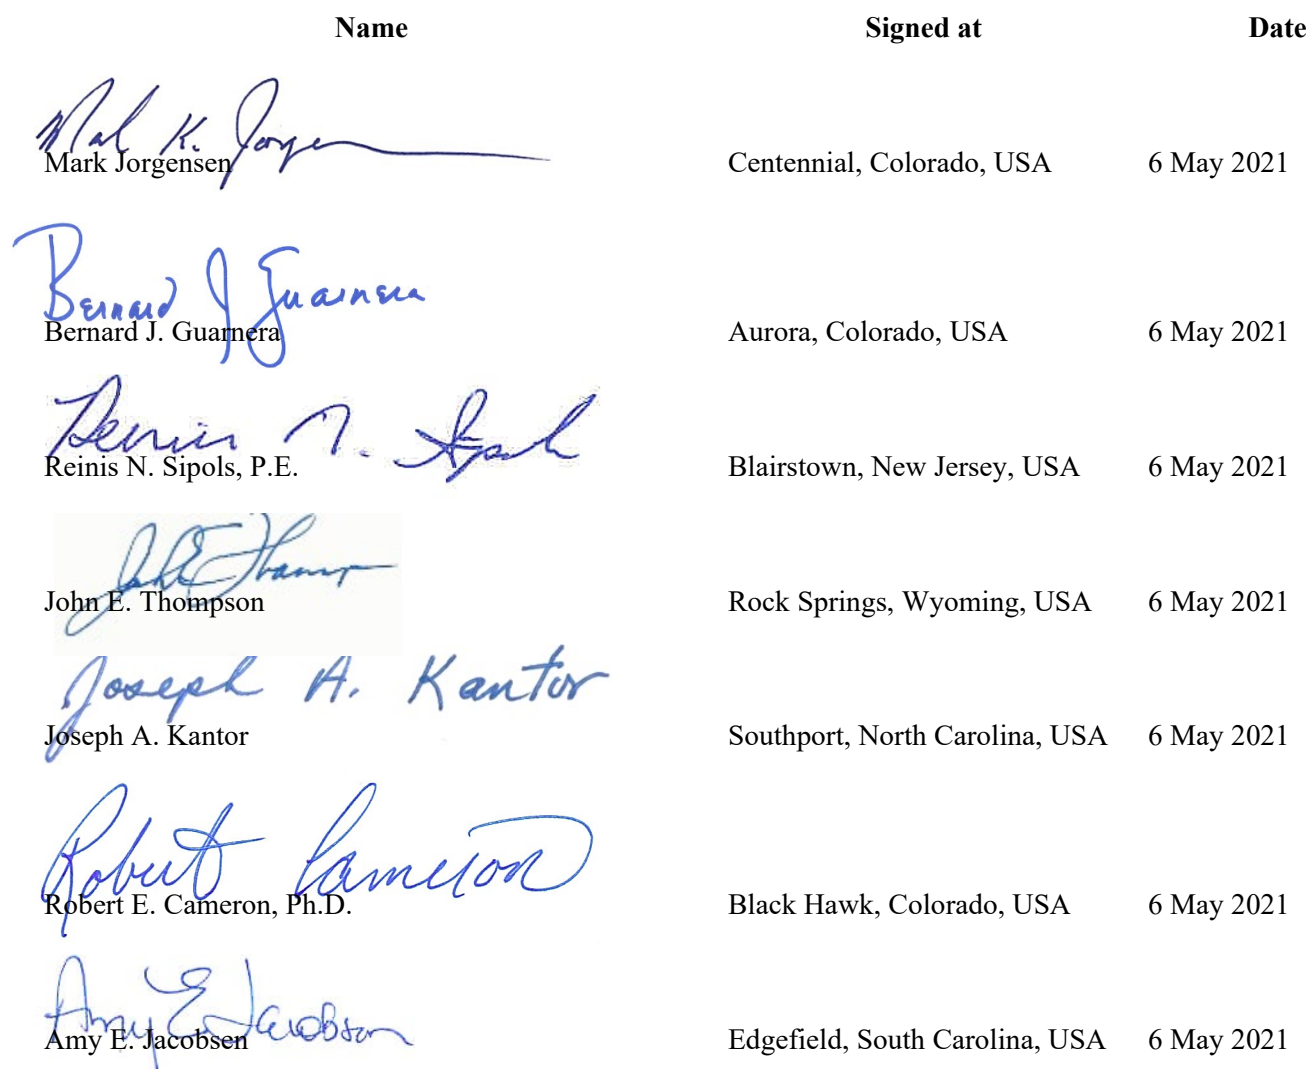 Name Signed at Date
Mark K. Jorgen
Mark Jorgensen Centennial, Colorado, USA 6 May 2021
Bernard J Guarnera
Bernard J. Guarnera Aurora, Colorado, USA 6 May 2021
Reinis N. Sipols
Reinis N. Sipols, P.E. Blairstown, New Jersey, USA 6 May 2021
John E Thomp
John E. Thompson Rock Springs, Wyoming, USA 6 May 2021
Joseph A. Kantor
Joseph A. Kantor Southport, North Carolina, USA 6 May 2021
Robert Cameron
Robert E. Cameron, Ph.D. Black Hawk, Colorado, USA 6 May 2021
Amy E. Jacobsen
Amy E. Jacobsen Edgefield, South Carolina, USA 6 May 2021